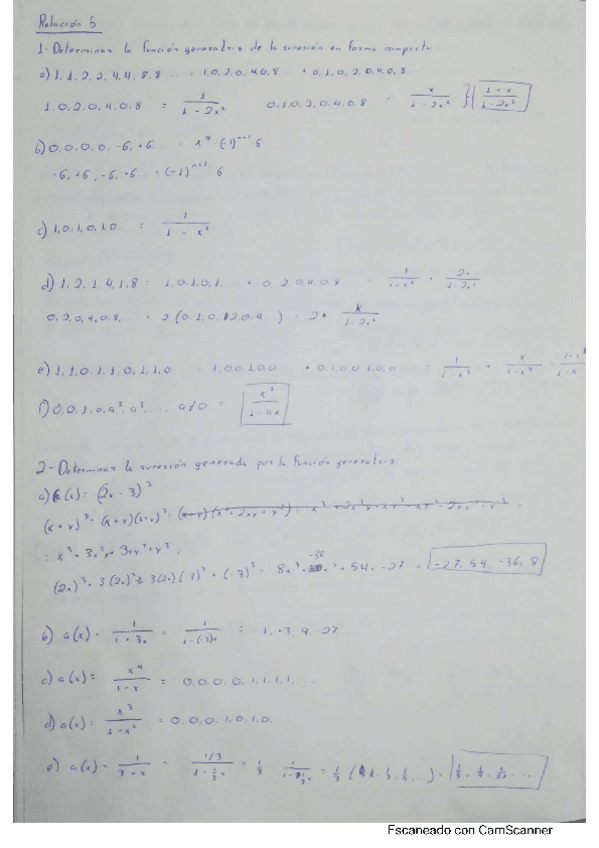 Relación 5
1- Determinar la función generatriz de la sucesión en forma compacta
a) 1, 1, 2, 2, 4, 4, 8, 8 ... = 1,0,2,0,4,0,8 + 0,1,0,2,0,4,0,8
1,0,2,0,4,0,8 = 1/(1-2x²)   0,1,0,2,0,4,0,8 = x/(1-2x²) } (1+x)/(1-2x²)
b) 0,0,0,0,-6,+6,
-6,+6,-6,+6 = (-1)ⁿ⁺¹ 6
c) 1,0,1,0,1,0 = 1/(1-x²)
d) 1,2,1,4,1,8 = 1,0,1,0,1, + 0,2,0,4,0,8 = 1/(1-x²) + 2x/(1-2x²)
0,2,0,4,0,8, = 2(0,1,0,2,0,4...) = 2 · x/(1-2x²)
e) 1,1,0,1,1,0,1,1,0   1,0,0,1,0,0 + 0,1,0,0,1,0,0 = 1/(1-x³) + x/(1-x³)
f) 0,0,1,a,a²,a³,... a≠0 = x²/(1-ax)
2- Determinar la sucesión generada por la función generatriz
a) a(x) = (2x-3)³
= x³+3x²y+3xy²+y³
(2x)³+3(2x)²+3(2x)(-3)²+(-3)³ = 8x³ -36x²+54x-27 = -27,54,-36,8
b) a(x) = 1/(1+3x) = 1/(1-(-3)x) = 1,-3,9,-27...
c) a(x) = x⁴/(1-x) = 0,0,0,0,1,1,1,1,...
d) a(x) = x³/(1-x²) = 0,0,0,1,0,1,0.
e) a(x) = 1/(3-x) = (1/3)/(1-⅓x) = ⅓
Escaneado con CamScanner